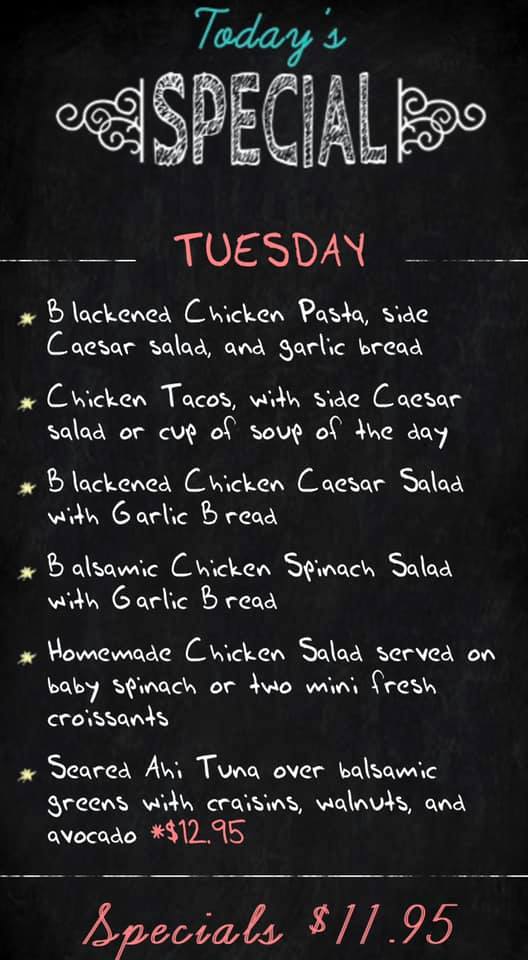 Today's
SPECIAL
TUESDAY
Blackened Chicken Pasta, side
Caesar salad, and garlic bread
Chicken Tacos, with side Caesar
salad or cup of soup of the day
Blackened Chicken Caesar Salad
with Garlic Bread
Balsamic Chicken Spinach Salad
with Garlic Bread
Homemade Chicken Salad served on
baby spinach or two mini fresh
croissants
Seared Ahi Tuna over balsamic
greens with craisins, walnuts, and
avocado *$12.95
Specials $11.95